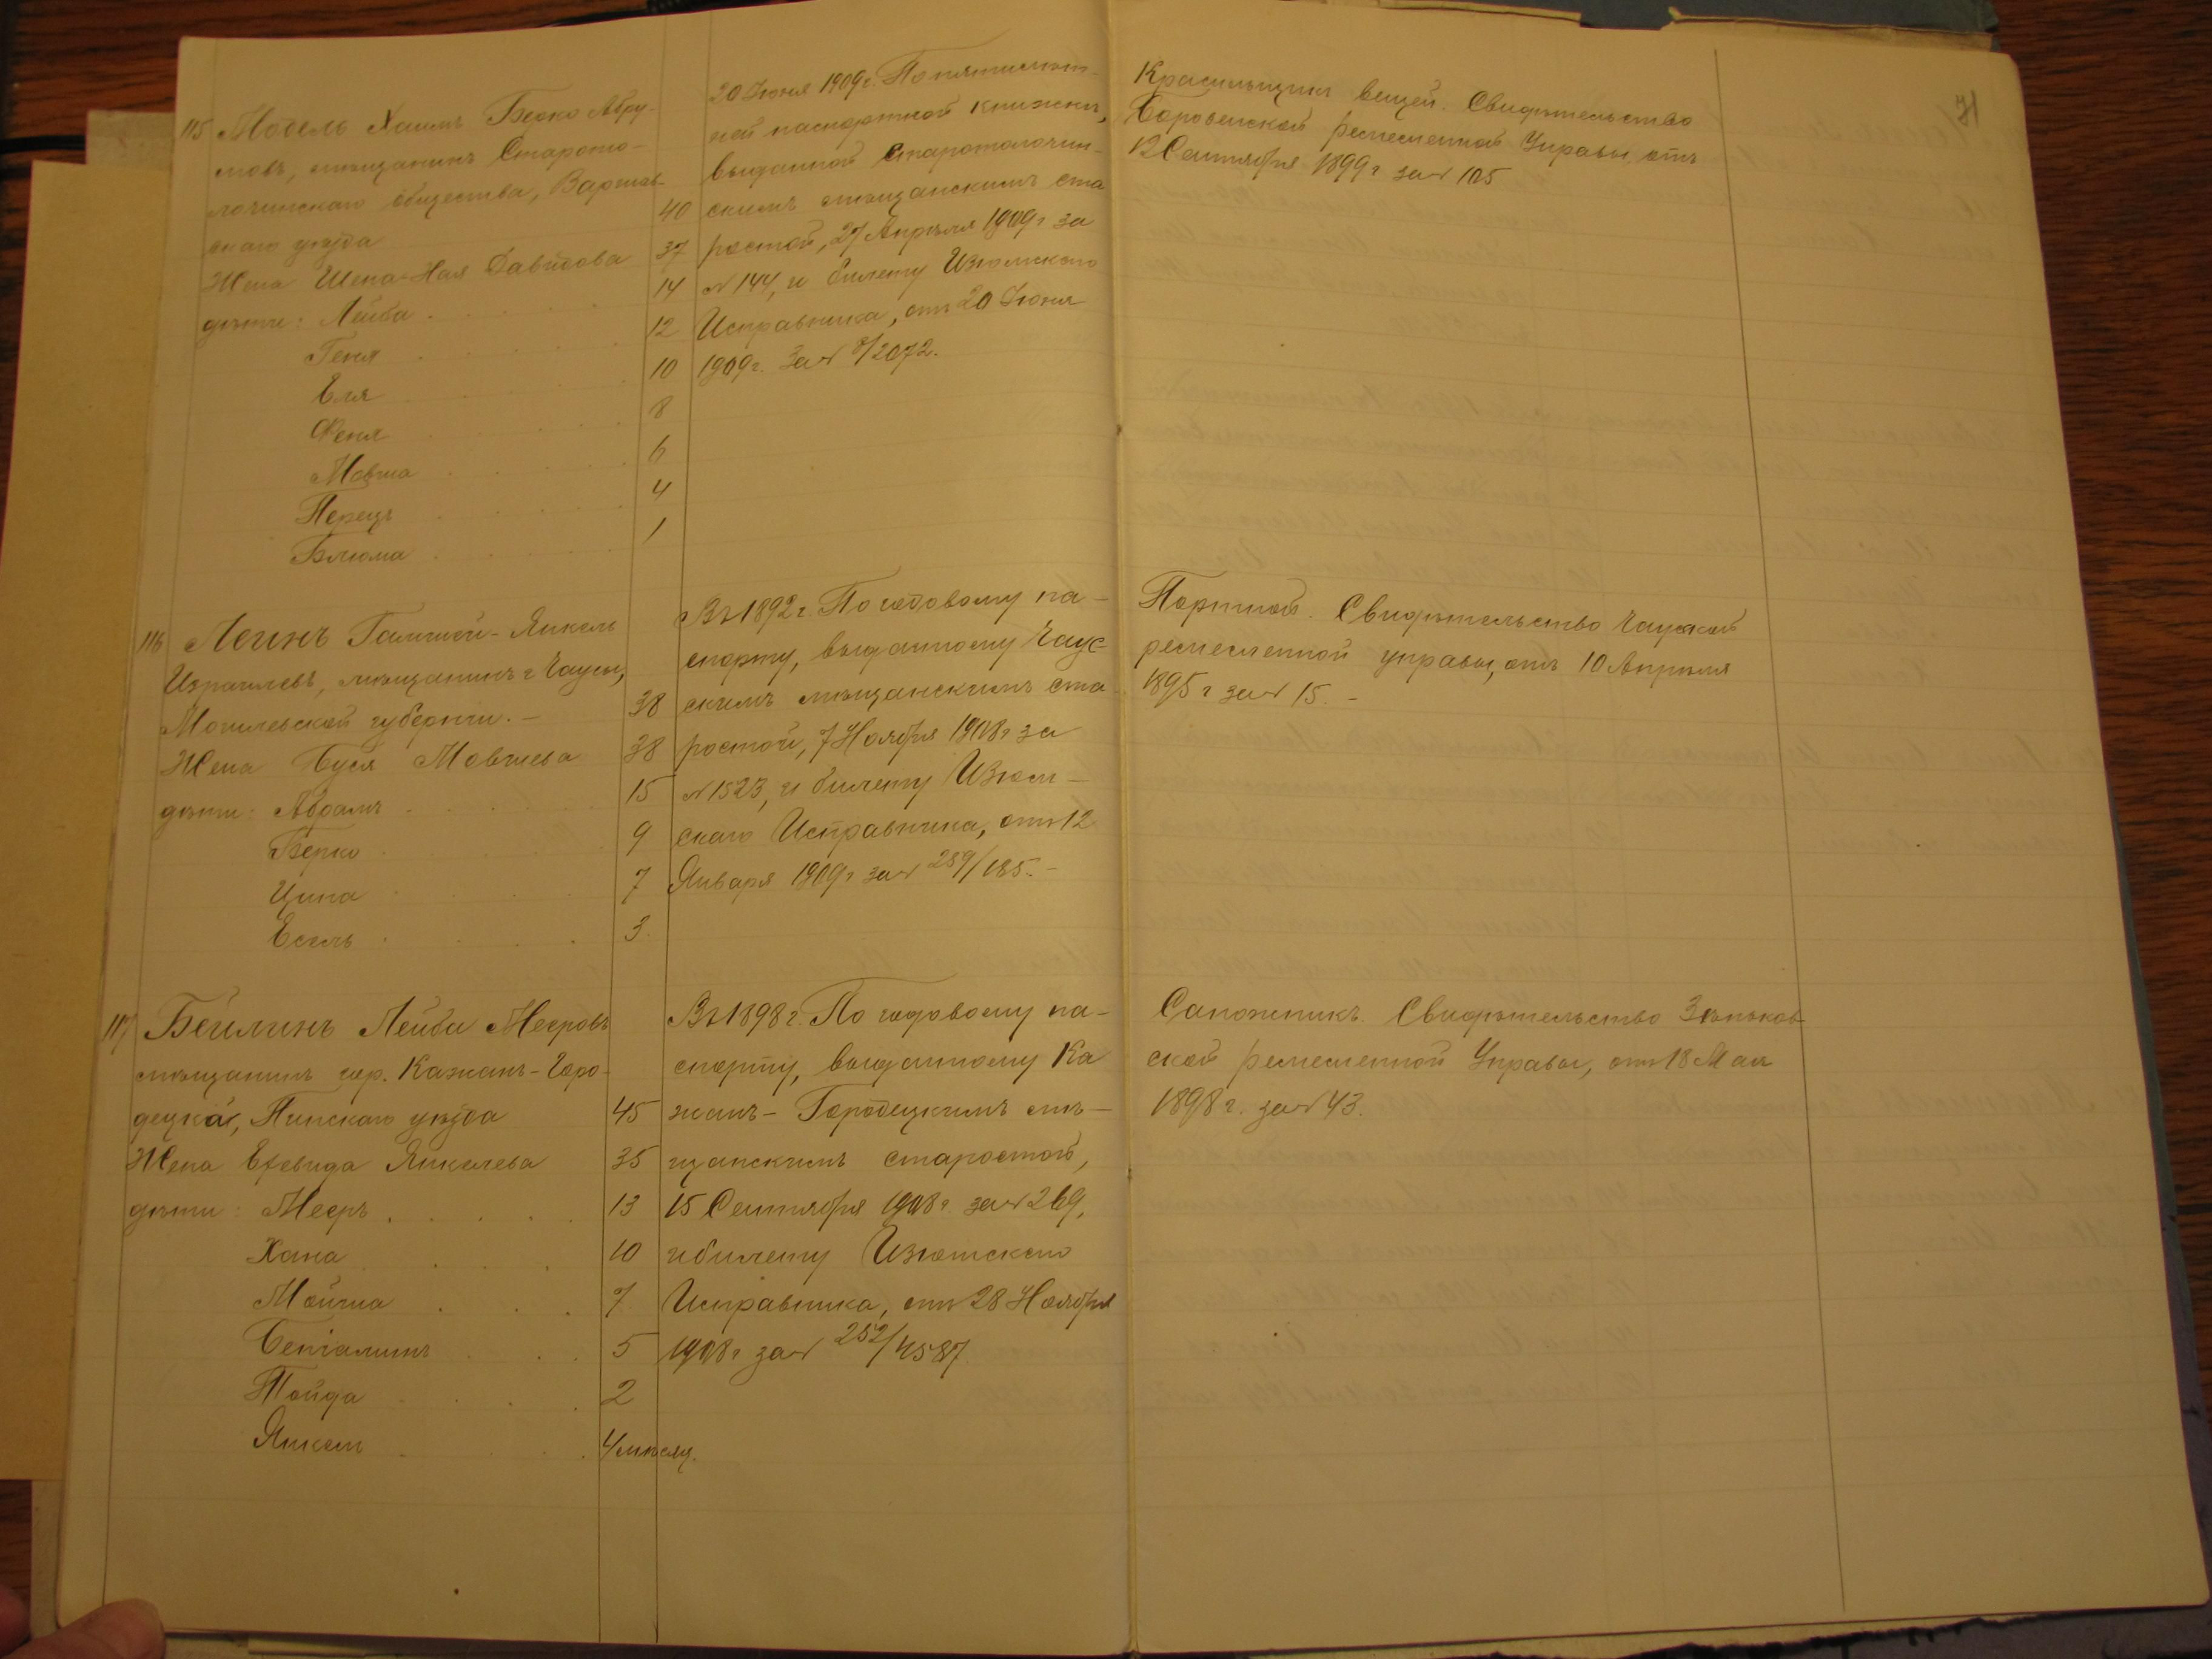 71
115 Модель Хаимъ Берко Абру-
мовъ, мѣщанинъ Старото-
лочинскаго общества, Варшав-
скаго уѣзда 40
Жена Шена-Хая Давидова 37
дѣти: Лейба 14
Геня 12
Еля 10
Феня 8
Мовша 6
Перецъ 4
Блюма 1
20 Іюня 1909 г. По пятилѣт-
ней паспортной книжкѣ,
выданной Старотолочин-
скимъ мѣщанскимъ ста
ростой, 27 Апрѣля 1909 г за
№ 144, и билету Изюмскаго
Исправника, отъ 20 Іюня
1909 г. за № /2072.
Красильщикъ вещей. Свидѣтельство
ремесленной Управы отъ
12 Сентября 1899 г за № 105
116 Левинъ Янкель
Израилевъ, мѣщанинъ г Чаусы,
Могилевской губерніи. — 38
Жена Буся Мовшева 38
дѣти: Абрамъ 15
Берко 9
Ципа 7
Есель 3
Въ 1892 г. По годовому па-
спорту, выданному Чаус-
скимъ мѣщанскимъ ста-
ростой, 7 Ноября 1908 г за
№ 1523, и билету Изюм-
скаго Исправника, отъ 12
Января 1909 г за № 289/185. —
Портной. Свидѣтельство Чауской
ремесленной управы, отъ 10 Апрѣля
1895 г за № 15. —
117 Бейлинъ Лейба Мееровъ
мѣщанинъ гор. Кажанъ-Горо-
децка, Пинскаго уѣзда 45
Жена Янкелева 35
дѣти: Мееръ 13
Хана 10
Мойша 7
Беніаминъ 5
Тойда 2
Янкель 4 мѣсяц.
Въ 1898 г. По годовому па-
спорту, выданному Ка
жанъ-Городецкимъ мѣ-
щанскимъ старостой,
15 Сентября 1908 г. за № 269,
и билету Изюмскаго
Исправника, отъ 28 Ноября
1908 г за № 252/4587
Сапожникъ. Свидѣтельство Зѣньков-
ской ремесленной Управы, отъ 18 Мая
1898 г. за № 43.